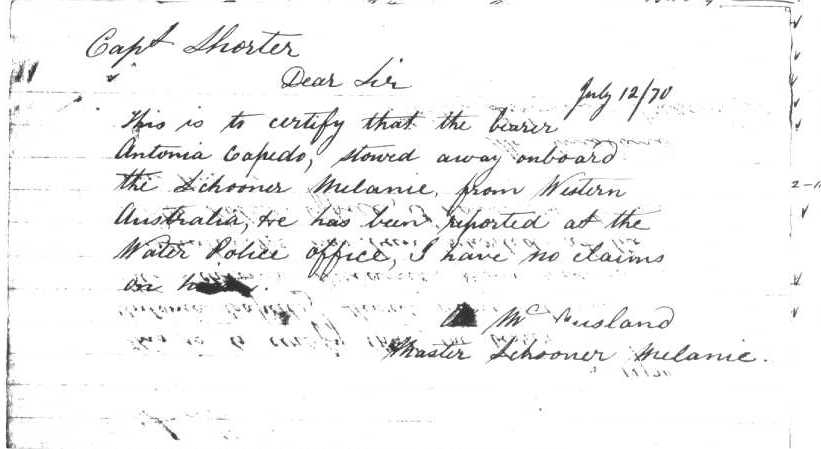 Capt Shorter
Dear Sir
July 12/70
This is to certify that the bearer
Antonia Capedo, stowed away onboard
the Schooner Melanie, from Western
Australia, He has been reported at the
Water Police office, I have no claims
on
Mc Ausland
Master Schooner Melanie.